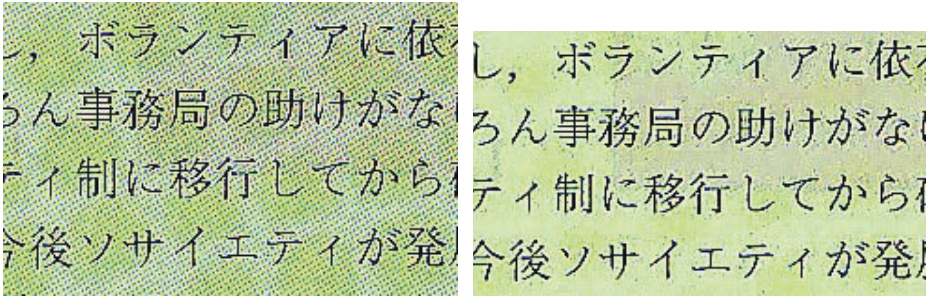 し，ボランティアに依
ろん事務局の助けがな
ティ制に移行してから
今後ソサイエティが発
し，ボランティアに依
ろん事務局の助けがな
ティ制に移行してから
今後ソサイエティが発